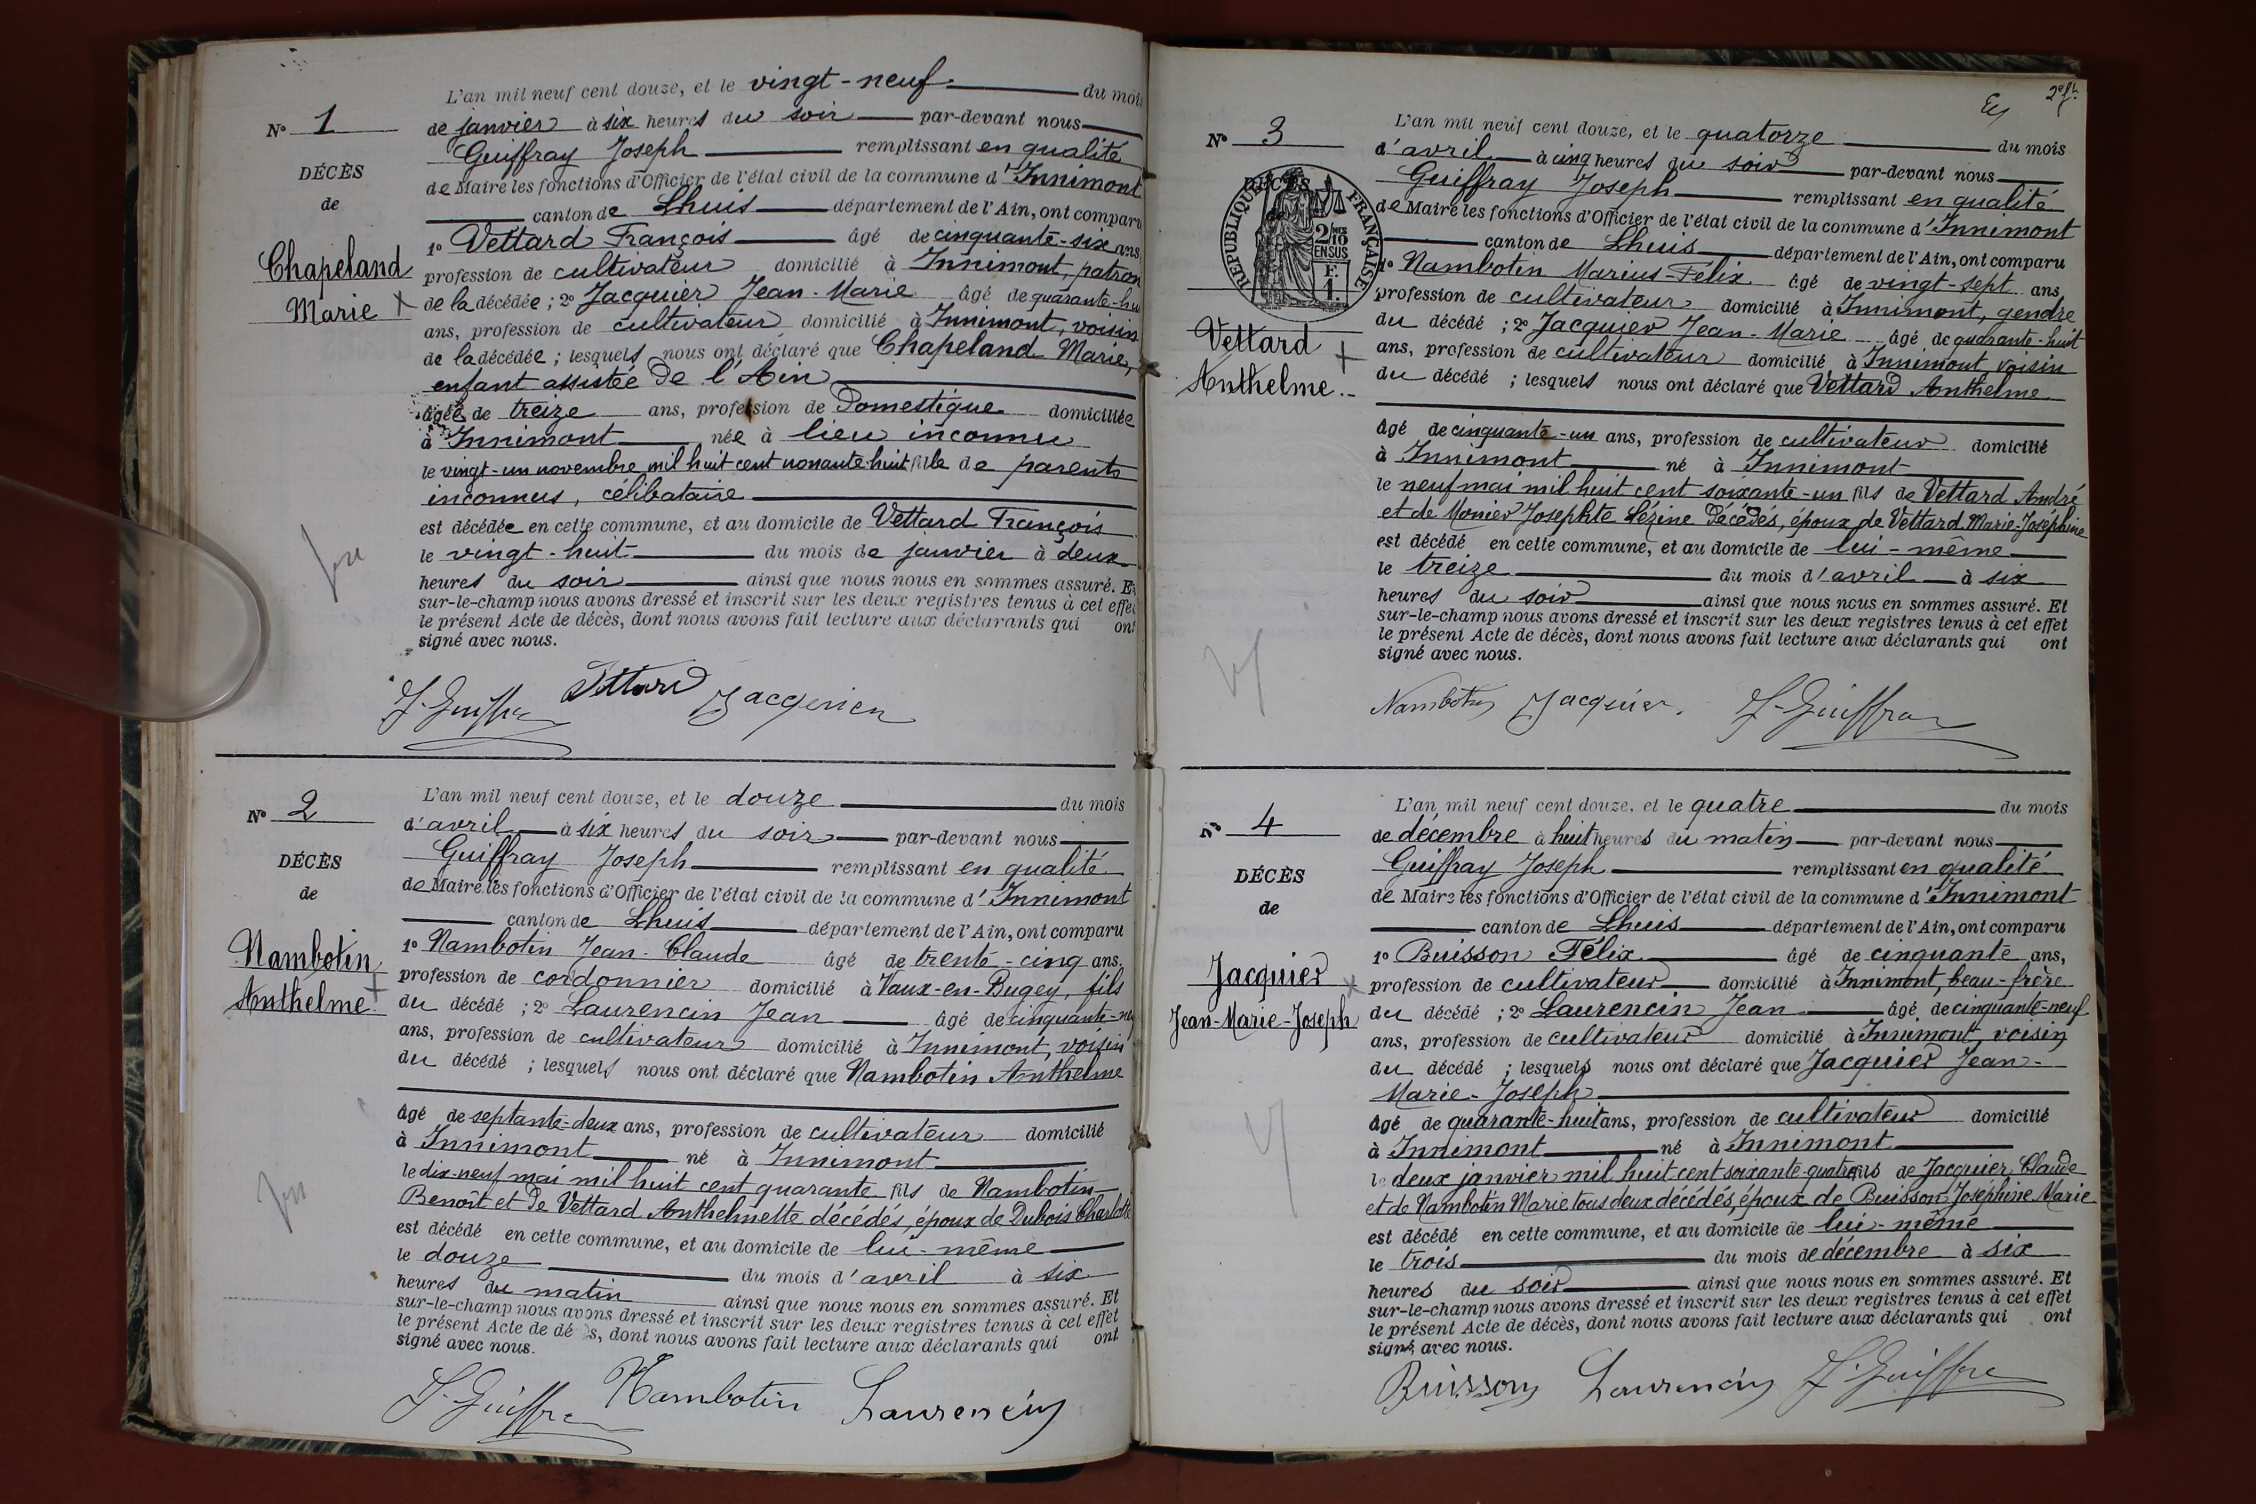 L'an mil neuf cent douze, et le vingt-neuf du mois
N° 1
de janvier à six heures du soir par-devant nous
Guiffray Joseph remplissant en qualité
DÉCÈS
de Maire les fonctions d'Officier de l'état civil de la commune d'Innimont
de
canton de Lhuis département de l'Ain, ont comparu
1° Vettard François âgé de cinquante-six ans,
Chapeland
profession de cultivateur domicilié à Innimont, patron
Marie
de la décédée ; 2° Jacquier Jean-Marie âgé de quarante-hu
ans, profession de cultivateur domicilié à Innimont, voisin
de la décédée ; lesquels nous ont déclaré que Chapeland Marie,
enfant assistée de l'Ain
âgée de treize ans, profession de Domestique domiciliée
à Innimont née à lieu inconnu
le vingt-un novembre mil huit cent nonante-huit fille de parents
inconnus, célibataire
est décédée en cette commune, et au domicile de Vettard François
le vingt-huit du mois de janvier à deux
heures du soir ainsi que nous nous en sommes assuré. Et
sur-le-champ nous avons dressé et inscrit sur les deux registres tenus à cet effet
le présent Acte de décès, dont nous avons fait lecture aux déclarants qui ont
signé avec nous.
J. Guiffray Vettard Jacquier
L'an mil neuf cent douze, et le douze du mois
N° 2
d'avril à six heures du soir par-devant nous
Guiffray Joseph remplissant en qualité
DÉCÈS
de Maire les fonctions d'Officier de l'état civil de la commune d'Innimont
de
canton de Lhuis département de l'Ain, ont comparu
1° Nambotin Jean-Claude âgé de trente-cinq ans,
Nambotin
profession de cordonnier domicilié à Vaux-en-Bugey, fils
Anthelme
du décédé ; 2° Laurencin Jean âgé de cinquante-neuf
ans, profession de cultivateur domicilié à Innimont, voisin
du décédé ; lesquels nous ont déclaré que Nambotin Anthelme
âgé de septante-deux ans, profession de cultivateur domicilié
à Innimont né à Innimont
le dix-neuf mai mil huit cent quarante fils de Nambotin
Benoît et de Vettard Anthelmette décédés, époux de Dubois Charlotte
est décédé en cette commune, et au domicile de lui-même
le douze du mois d'avril à six
heures du matin ainsi que nous nous en sommes assuré. Et
sur-le-champ nous avons dressé et inscrit sur les deux registres tenus à cet effet
le présent Acte de dé s, dont nous avons fait lecture aux déclarants qui ont
signé avec nous.
J. Guiffray Nambotin Laurencin
2e f.
L'an mil neuf cent douze, et le quatorze du mois
N° 3
d'avril à cinq heures du soir par-devant nous
DÉCÈS
RÉPUBLIQUE FRANÇAISE
2/10 EN SUS
F. 1.
Guiffray Joseph remplissant en qualité
de Maire les fonctions d'Officier de l'état civil de la commune d'Innimont
canton de Lhuis département de l'Ain, ont comparu
1° Nambotin Marius Félix âgé de vingt-sept ans,
profession de cultivateur domicilié à Innimont, gendre
du décédé ; 2° Jacquier Jean-Marie âgé de quarante-huit
Vettard
ans, profession de cultivateur domicilié à Innimont voisin
Anthelme
du décédé ; lesquels nous ont déclaré que Vettard Anthelme
âgé de cinquante-un ans, profession de cultivateur domicilié
à Innimont né à Innimont
le neuf mai mil huit cent soixante-un fils de Vettard André
et de Monier Josephte Lézine décédés, époux de Vettard Marie-Joséphine
est décédé en cette commune, et au domicile de lui-même
le treize du mois d'avril à six
heures du soir ainsi que nous nous en sommes assuré. Et
sur-le-champ nous avons dressé et inscrit sur les deux registres tenus à cet effet
le présent Acte de décès, dont nous avons fait lecture aux déclarants qui ont
signé avec nous.
Nambotin Jacquier. J. Guiffray
L'an mil neuf cent douze, et le quatre du mois
N° 4
de décembre à huit heures du matin par-devant nous
Guiffray Joseph remplissant en qualité
DÉCÈS
de Maire les fonctions d'Officier de l'état civil de la commune d'Innimont
de
canton de Lhuis département de l'Ain, ont comparu
1° Buisson Félix âgé de cinquante ans,
Jacquier
profession de cultivateur domicilié à Innimont, beau-frère
Jean-Marie-Joseph
du décédé ; 2° Laurencin Jean âgé de cinquante-neuf
ans, profession de cultivateur domicilié à Innimont, voisin
du décédé ; lesquels nous ont déclaré que Jacquier Jean-
Marie-Joseph
âgé de quarante-huit ans, profession de cultivateur domicilié
à Innimont né à Innimont
le deux janvier mil huit cent soixante-quatre fils de Jacquier Claude
et de Nambotin Marie tous deux décédés, époux de Buisson Joséphine Marie
est décédé en cette commune, et au domicile de lui-même
le trois du mois de décembre à six
heures du soir ainsi que nous nous en sommes assuré. Et
sur-le-champ nous avons dressé et inscrit sur les deux registres tenus à cet effet
le présent Acte de décès, dont nous avons fait lecture aux déclarants qui ont
signé avec nous.
Buisson Laurencin J. Guiffray